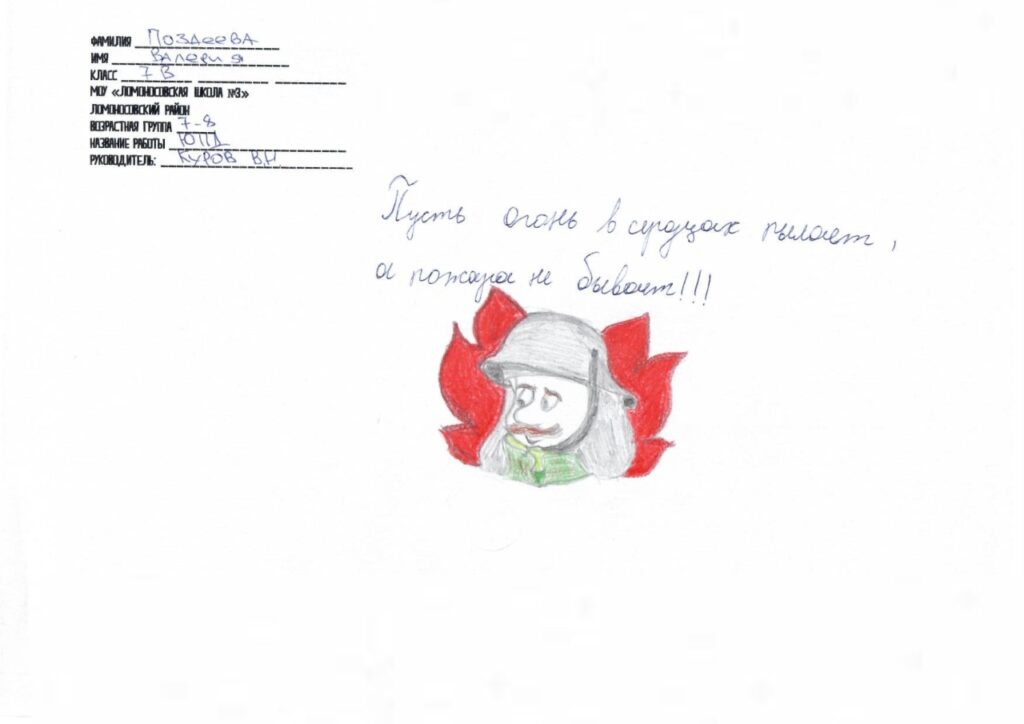 ФАМИЛИЯ Поздеева
ИМЯ Валерия
КЛАСС 7 В
МОУ «ЛОМОНОСОВСКАЯ ШКОЛА №3»
ЛОМОНОСОВСКИЙ РАЙОН
ВОЗРАСТНАЯ ГРУППА 7-8
НАЗВАНИЕ РАБОТЫ ЮПД
РУКОВОДИТЕЛЬ: Куров ВН
Пусть огонь в сердцах пылает,
а пожара не бывает!!!